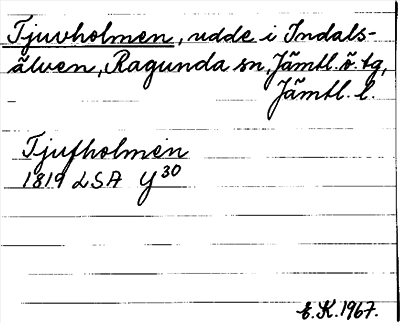 Tjuvholmen, udde i Indals-
älven, Ragunda sn, Jämtl. ö. tg,
Jämtl. l.
Tjufholmen
1819 LSA Y 30
E. K. 1967.